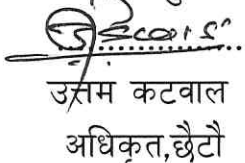 उत्तम कटवाल
अधिकृत,छैटौ